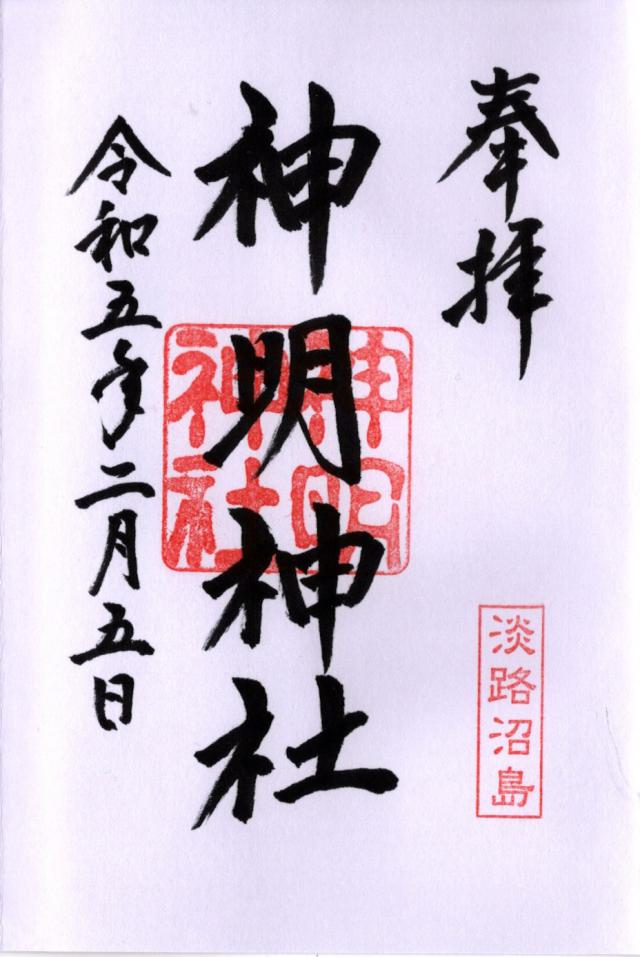 奉拝
淡路沼島
神明神社
神明神社
令和五年二月五日